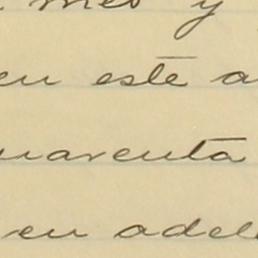 mes y
en este a
uarenta
en adel